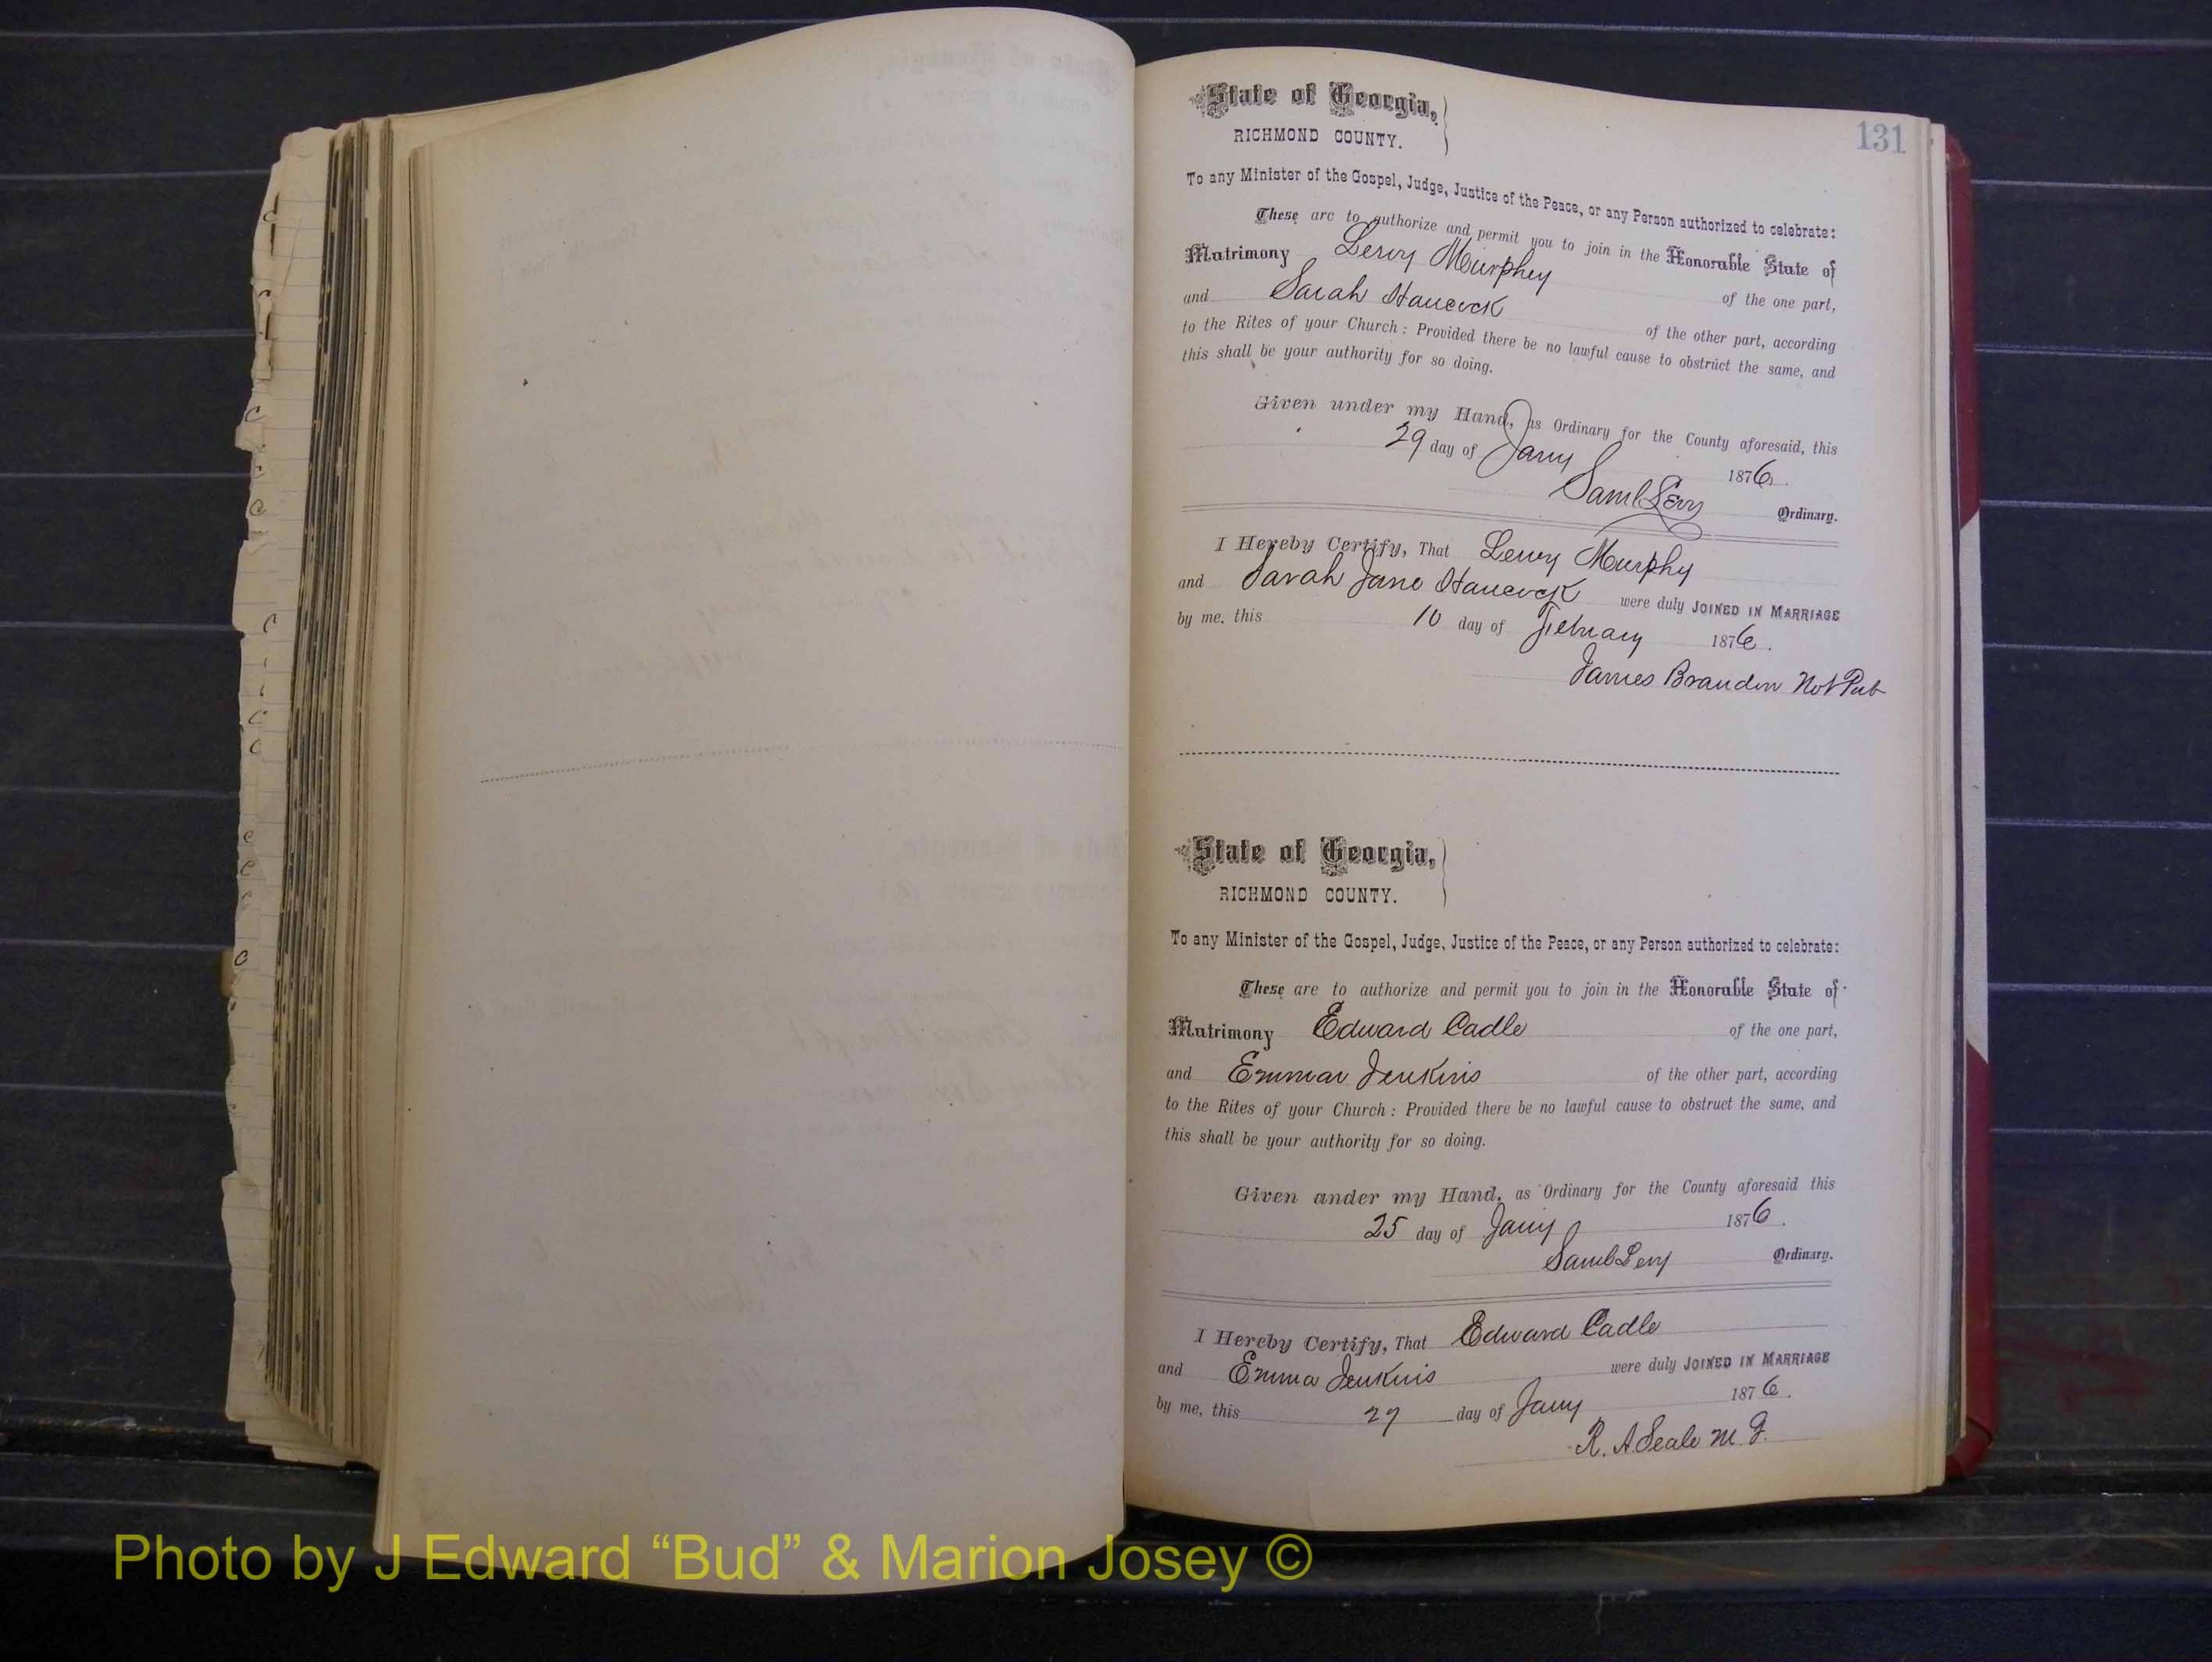 131
State of Georgia,
RICHMOND COUNTY.
To any Minister of the Gospel, Judge, Justice of the Peace, or any Person authorized to celebrate:
These are to authorize and permit you to join in the Honorable State of
Matrimony Leroy Murphey of the one part,
and Sarah Hancock of the other part, according
to the Rites of your Church: Provided there be no lawful cause to obstruct the same, and
this shall be your authority for so doing.
Given under my Hand, as Ordinary for the County aforesaid, this
29 day of Jany 1876.
Saml Levy Ordinary.
I Hereby Certify, That Leroy Murphy
and Sarah Jane Hancock were duly JOINED IN MARRIAGE
by me, this 10 day of February 1876.
James Brandon Not Pub
State of Georgia,
RICHMOND COUNTY.
To any Minister of the Gospel, Judge, Justice of the Peace, or any Person authorized to celebrate:
These are to authorize and permit you to join in the Honorable State of
Matrimony Edward Cadle of the one part,
and Emmar Jenkins of the other part, according
to the Rites of your Church: Provided there be no lawful cause to obstruct the same, and
this shall be your authority for so doing.
Given under my Hand, as Ordinary for the County aforesaid this
25 day of Jany 1876.
Saml Levy Ordinary.
I Hereby Certify, That Edward Cadle
and Emma Jenkins were duly JOINED IN MARRIAGE
by me, this 27 day of Jany 1876.
R. A Seale M. G.
Photo by J Edward “Bud” & Marion Josey ©